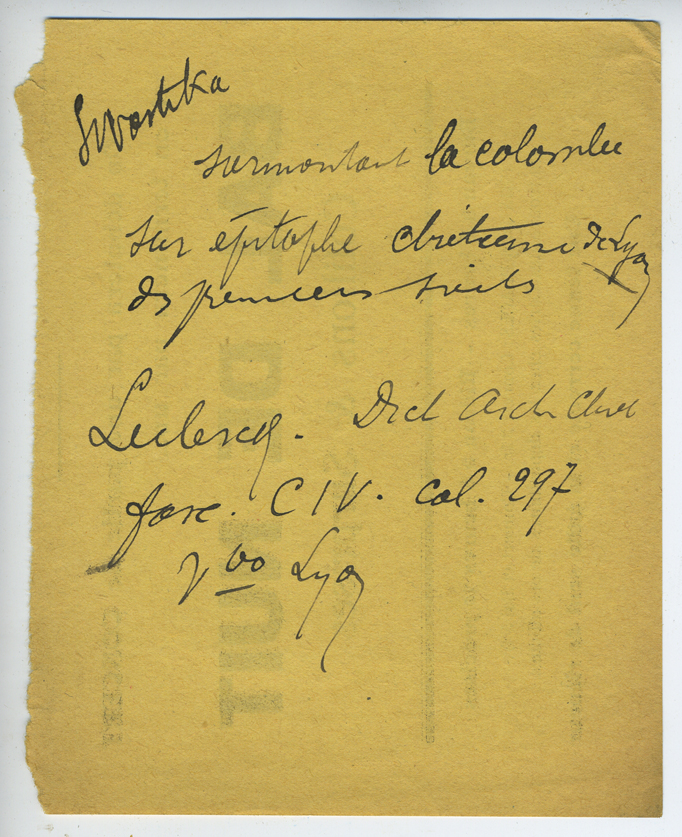 Swastika
surmontant la colombe
sur épitaphe chrétienne de Lyon
des premiers siècles
Leclercq. Dict Arch Chret
fasc. CIV. col. 297
Vbo Lyon